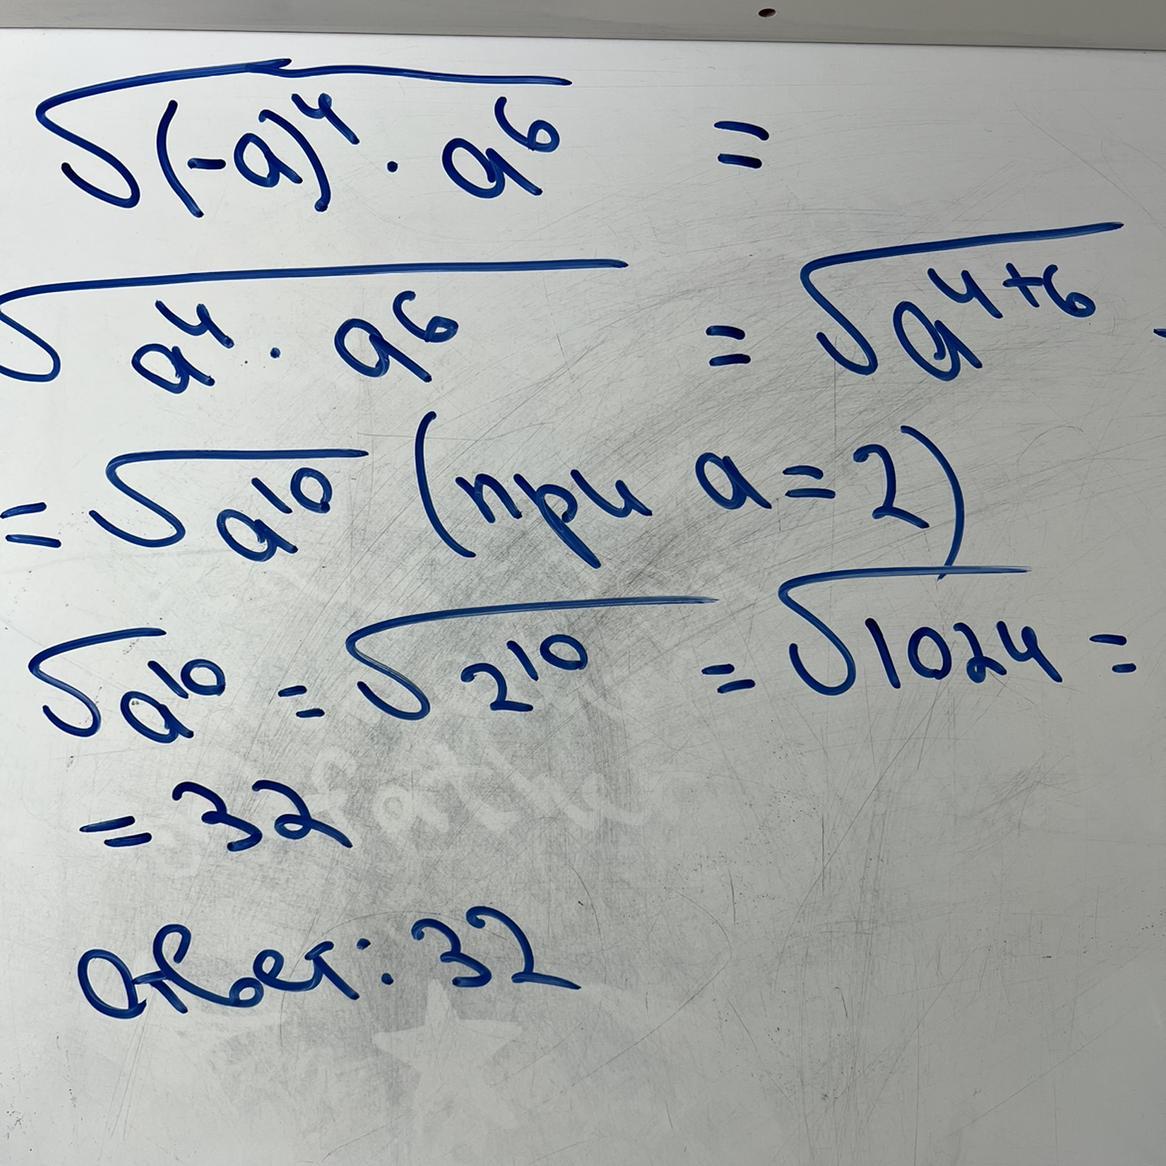 √(-a)⁴ · a⁶ =
√a⁴ · a⁶ = √a⁴⁺⁶
= √a¹⁰ (при a = 2)
√a¹⁰ = √2¹⁰ = √1024 =
= 32
ответ: 32